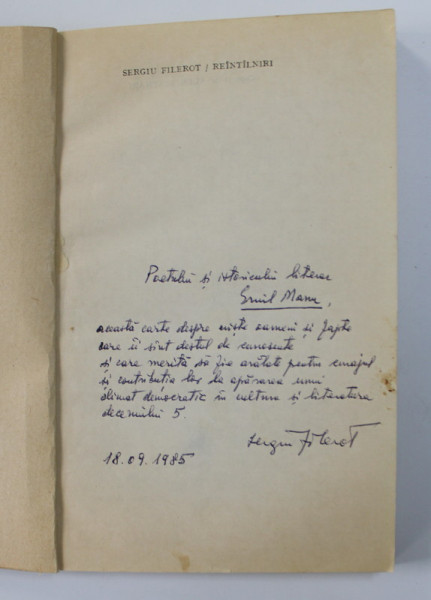 SERGIU FILEROT / REÎNTÎLNIRI
Poetului și istoricului literar
Emil Manu,
această carte despre niște oameni și fapte
care îi sînt destul de cunoscute
și care merită să fie arătate pentru curajul
și contribuția lor la apărarea unui
climat democratic în cultura și literatura
deceniului 5.
Sergiu Filerot
18.09.1985